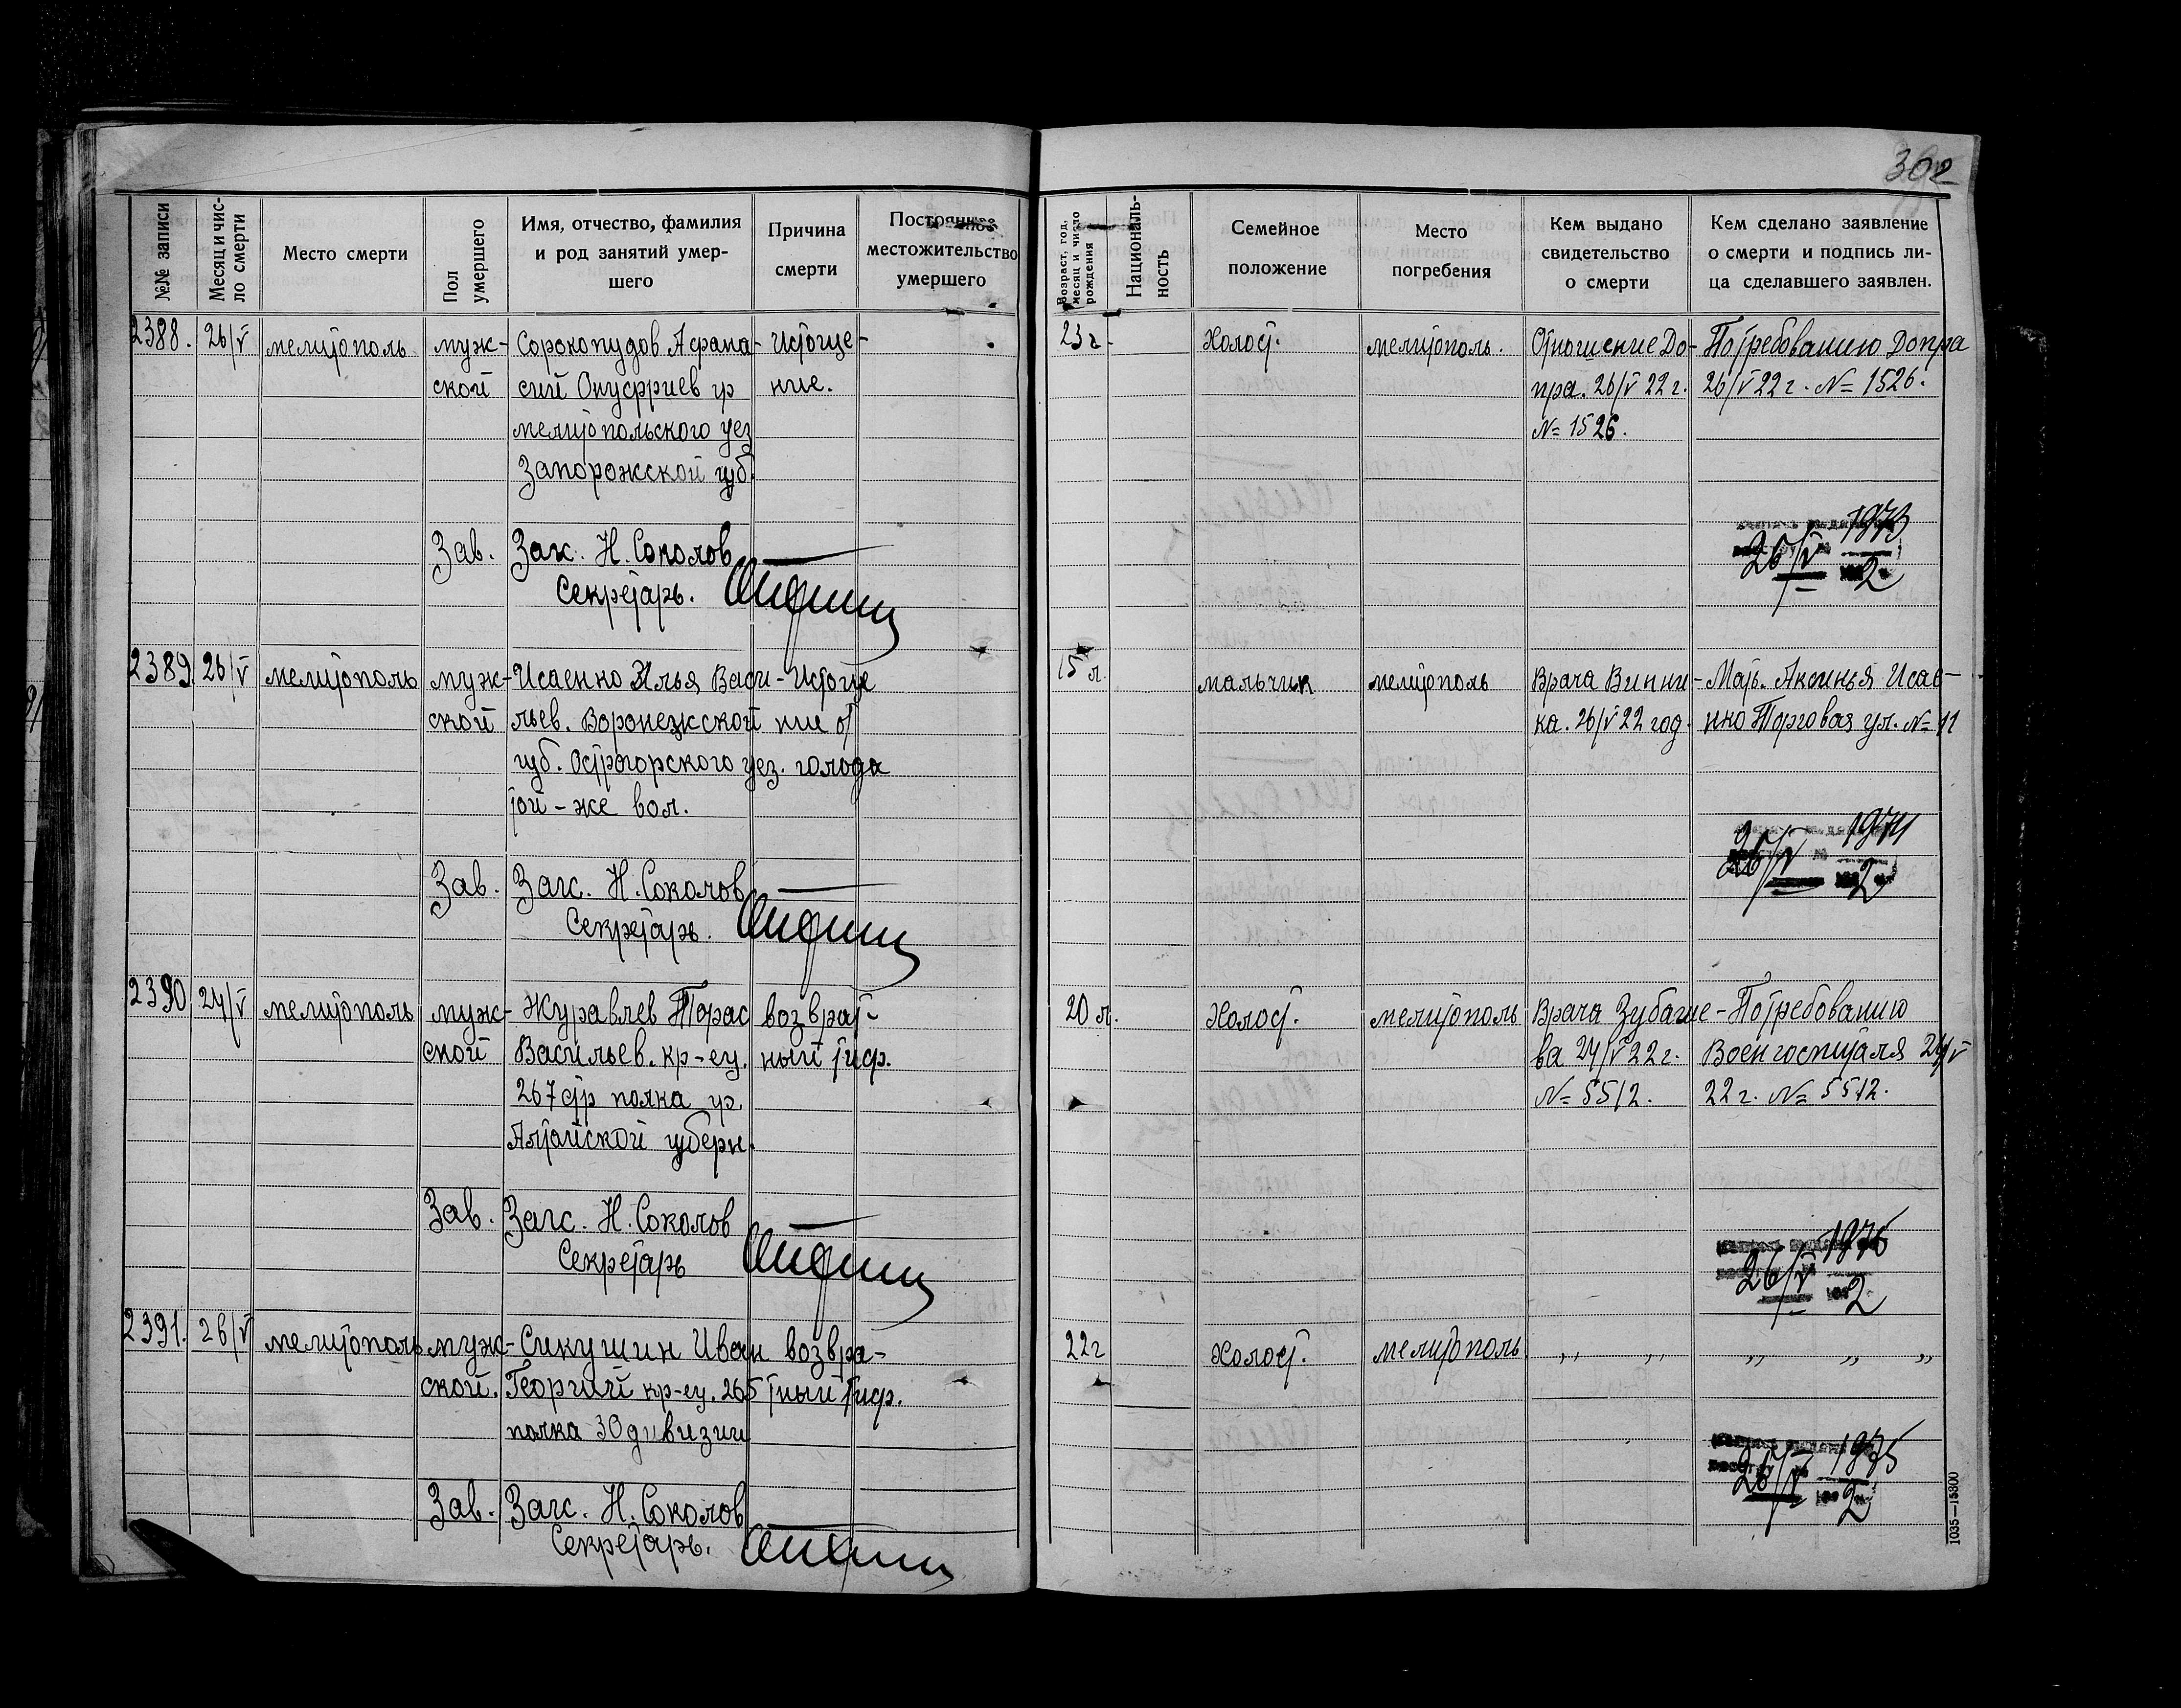 302
№№ записи
Месяц и чис-
ло смерти
Место смерти
Пол
умершего
Имя, отчество, фамилия
и род занятий умер-
шего
Причина
смерти
Постоянное
местожительство
умершего
Возраст, год,
месяц и число
рождения
Националь-
ность
Семейное
положение
Место
погребения
Кем выдано
свидетельство
о смерти
Кем сделано заявление
о смерти и подпись ли-
ца сделавшего заявлен.
2388. 26/V мелитополь муж- Сорокопудов Афана- Истоще- 23 г. Холост. мелитополь. Отношение До- По требованию Допра
ской сий Онуфриев гр ние. пра. 26/V 22 г. 26/V 22 г. № 1526.
мелитопольского уез № 1526.
Запорожской губ.
Зав. Загс. Н. Соколов 1973
Секретарь. 26/V 2
2389 26/V мелитополь муж- Исаенко Илья Васи- Истоще 15 л. мальчик мелитополь Врача Винни- Мать. Аксинья Исае-
ской льев. Воронежской ние от ка. 26/V 22 год. нко Торговая ул. № 11
губ. Острогорского уез. голода
той-же вол.
Зав. Загс. Н. Соколов 1974
Секретарь. 26/V 2
2390 24/V мелитополь муж- Журавлев Тарас возврат- 20 л. Холост. мелитополь Врача Зубаше- По требованию
ской Васильев. кр-ец. ный тиф. ва 24/V 22 г. Военгоспиталя 24/V
267 стр полка гр. № 5512. 22 г. № 5512.
Алтайской губерн.
Зав. Загс. Н. Соколов 1976
Секретарь 26/V 2
2391. 26/V мелитополь муж- Сикушин Иван возвра- 22 г Холост. мелитополь ,, ,, ,, ,, ,,
ской. Георгий кр-ец. 265 тный тиф.
полка 30 дивизии
Зав. Загс. Н. Соколов 1975
Секретарь. 26/V 2
1035—15800